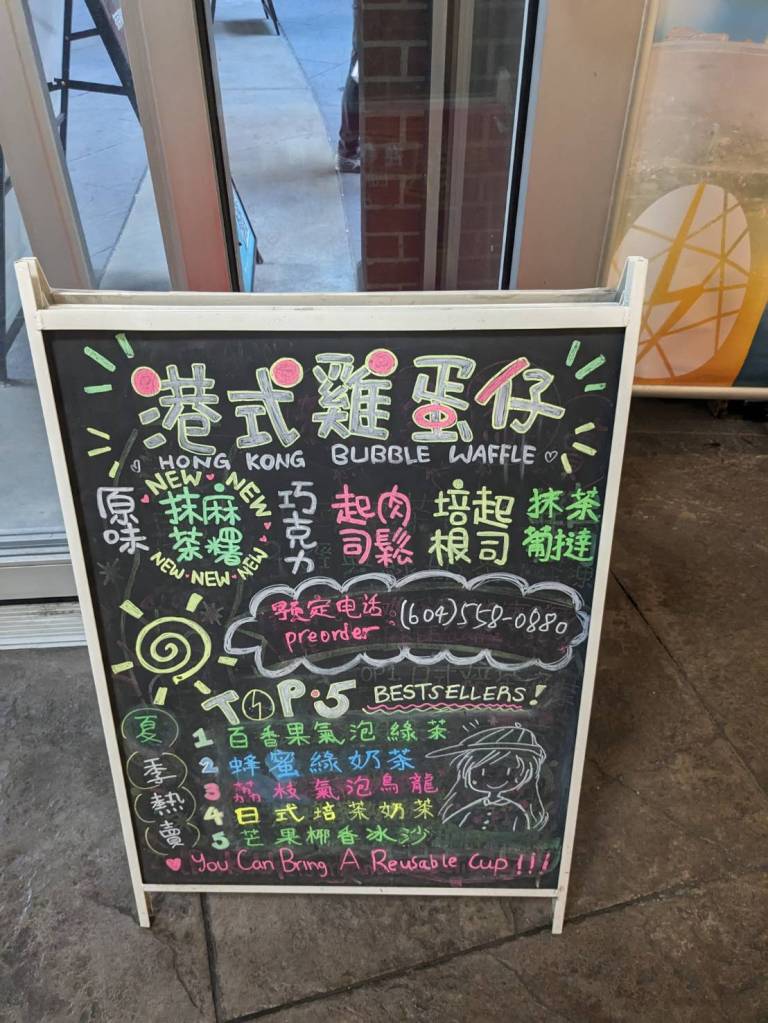 港式雞蛋仔
HONG KONG BUBBLE WAFFLE
原味
NEW NEW
抹茶麻糬
NEW NEW NEW
巧克力
起司肉鬆
培根起司
抹茶葡撻
預定电话 preorder (604)558-0880
TOP 5 BESTSELLERS!
夏季熱賣
1 百香果氣泡綠茶
2 蜂蜜綠奶茶
3 荔枝氣泡烏龍
4 日式培茶奶茶
5 芒果椰香冰沙
You Can Bring A Reusable Cup!!!